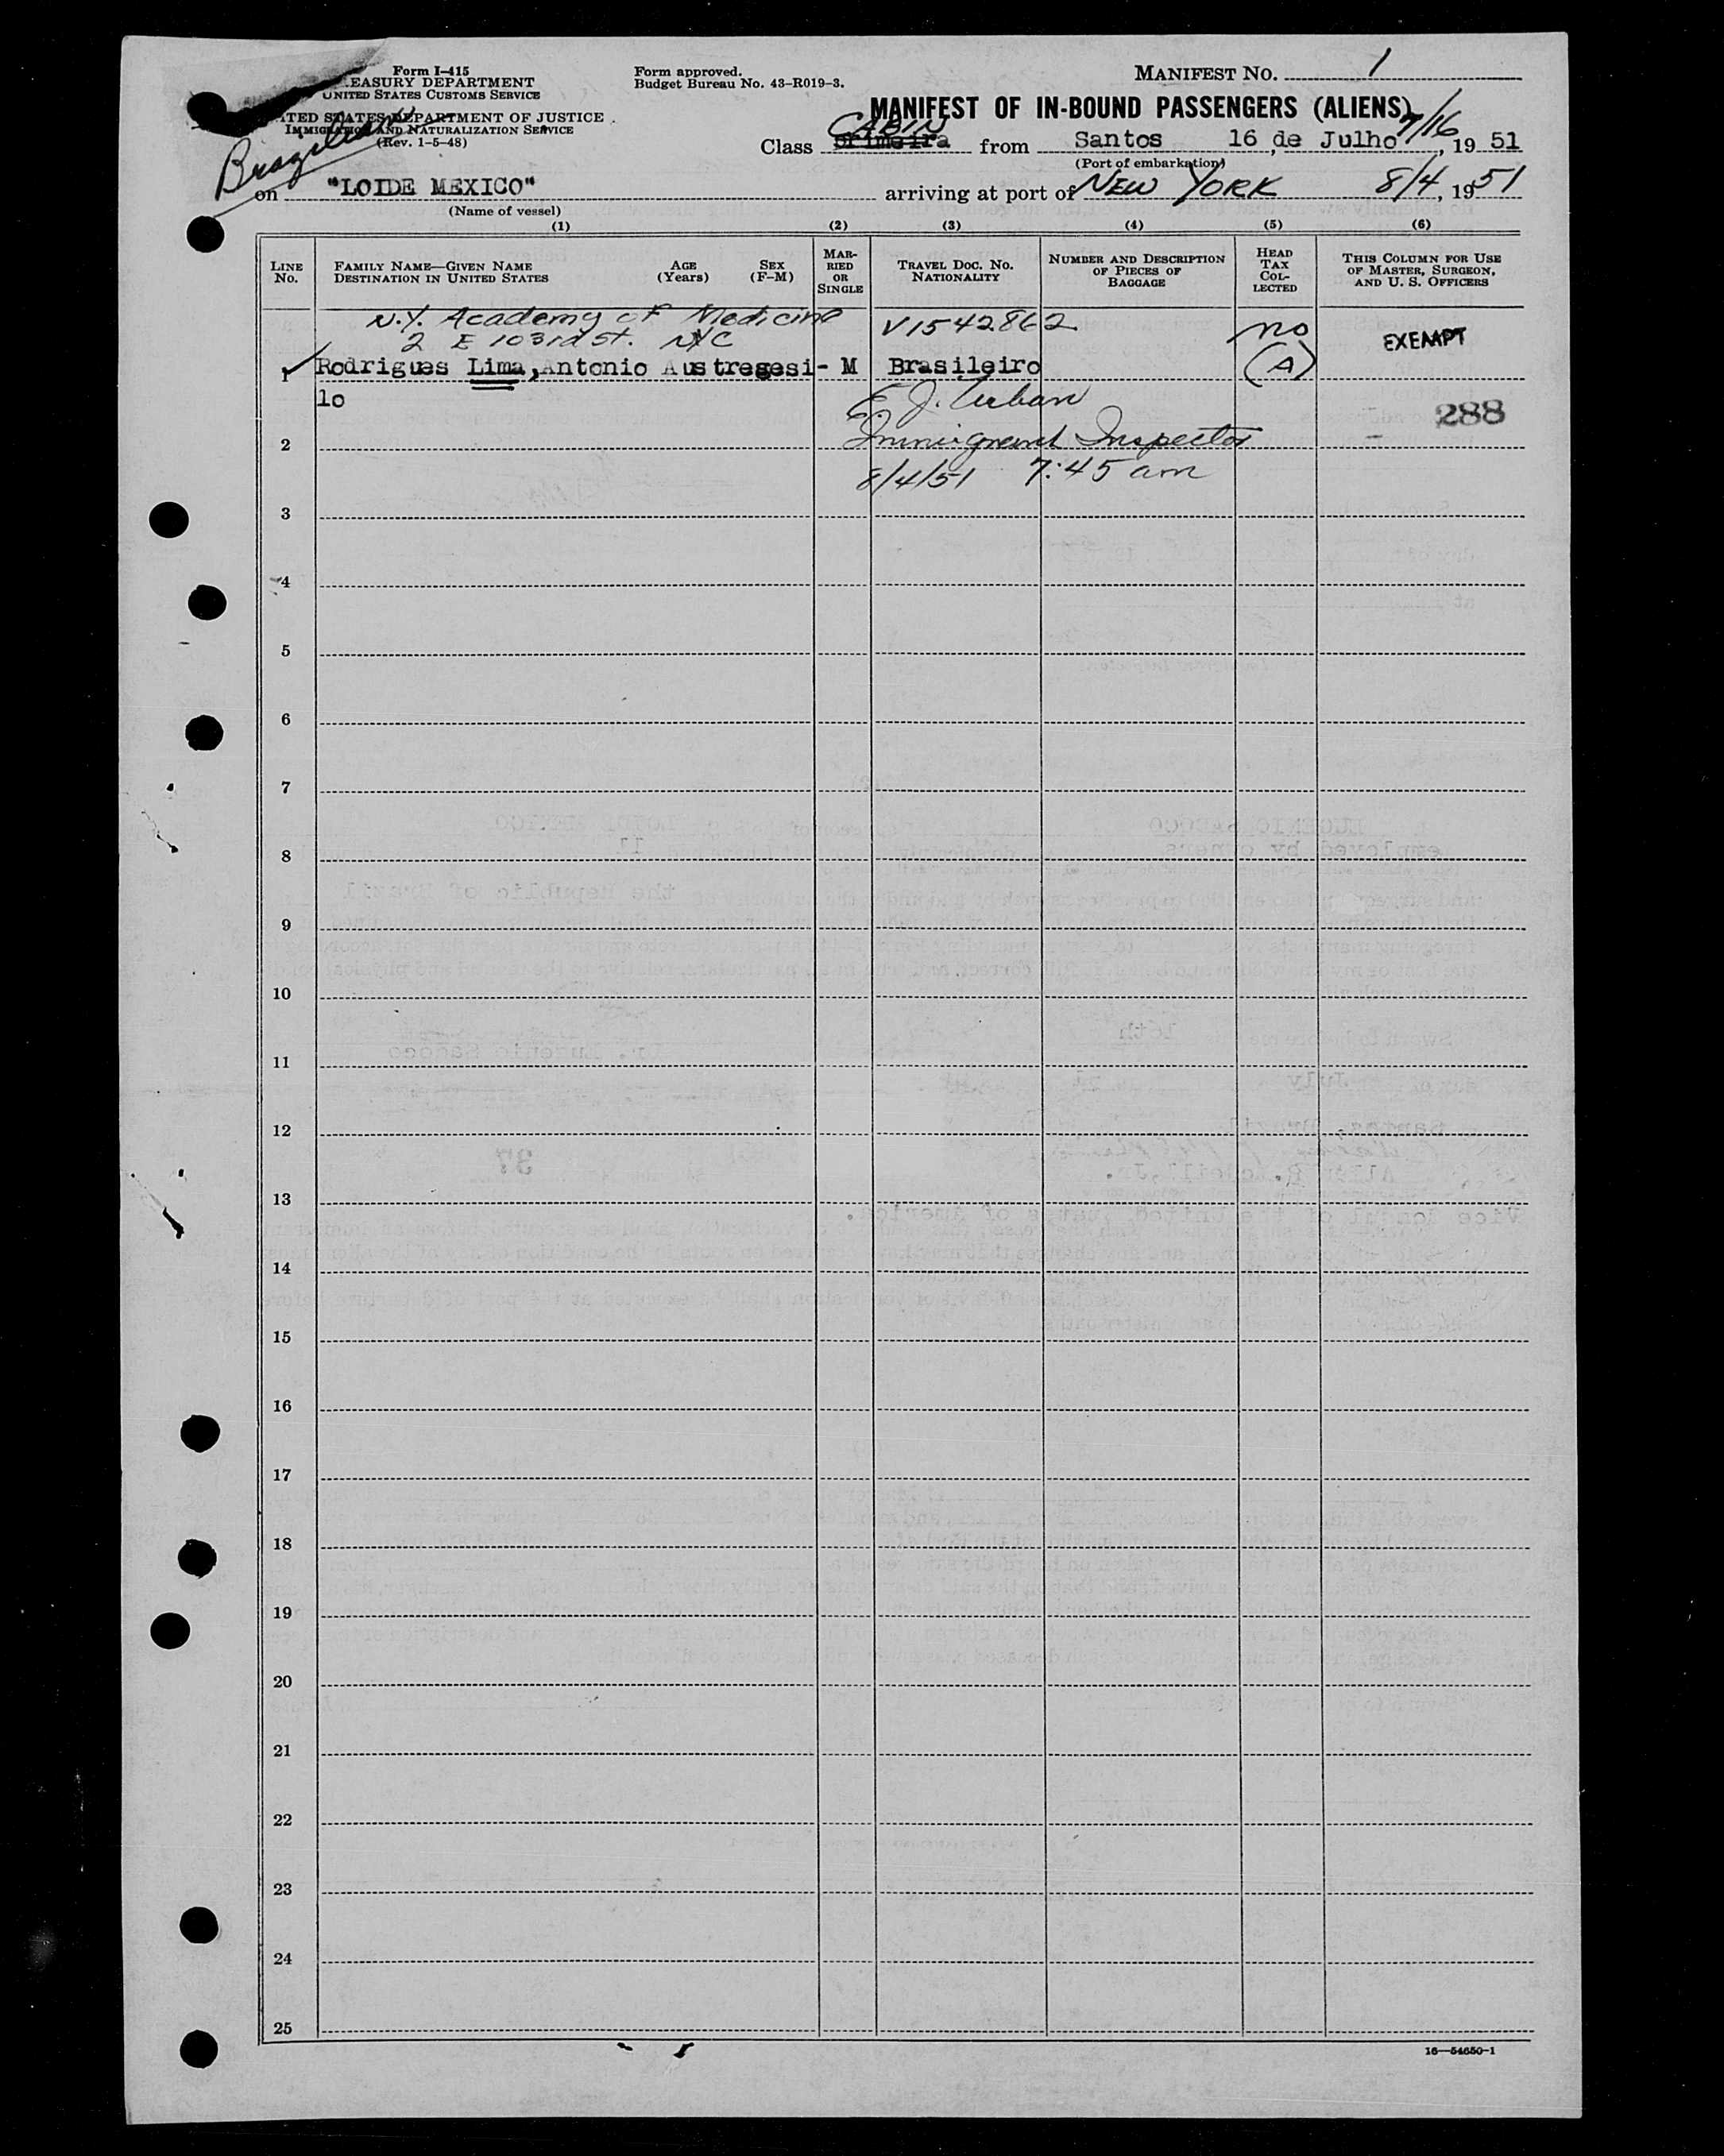 Form I-415
TREASURY DEPARTMENT
UNITED STATES CUSTOMS SERVICE
UNITED STATES DEPARTMENT OF JUSTICE
IMMIGRATION AND NATURALIZATION SERVICE
(Rev. 1-5-48)
Brazilian
Form approved.
Budget Bureau No. 43-R019-3.
MANIFEST NO. 1
MANIFEST OF IN-BOUND PASSENGERS (ALIENS)
CABIN 7/16
Class primeira from Santos 16 de Julho, 19 51
(Port of embarkation)
on "LOIDE MEXICO" arriving at port of NEW YORK 8/4, 1951
(Name of vessel)
(1) (2) (3) (4) (5) (6)
LINE No. FAMILY NAME—GIVEN NAME DESTINATION IN UNITED STATES AGE (Years) SEX (F-M) MARRIED OR SINGLE TRAVEL DOC. NO. NATIONALITY NUMBER AND DESCRIPTION OF PIECES OF BAGGAGE HEAD TAX COLLECTED THIS COLUMN FOR USE OF MASTER, SURGEON, AND U. S. OFFICERS
N.Y. Academy of Medicine V1542862 no EXEMPT
2 E 103rd St. NYC
1 Rodrigues Lima, Antonio Austregesi- M Brasileiro (A)
lo E. J. Urban 288
2 Immigrant Inspector -
8/4/51 7:45 am
3
4
5
6
7
8
9
10
11
12
13
14
15
16
17
18
19
20
21
22
23
24
25
16—54650-1